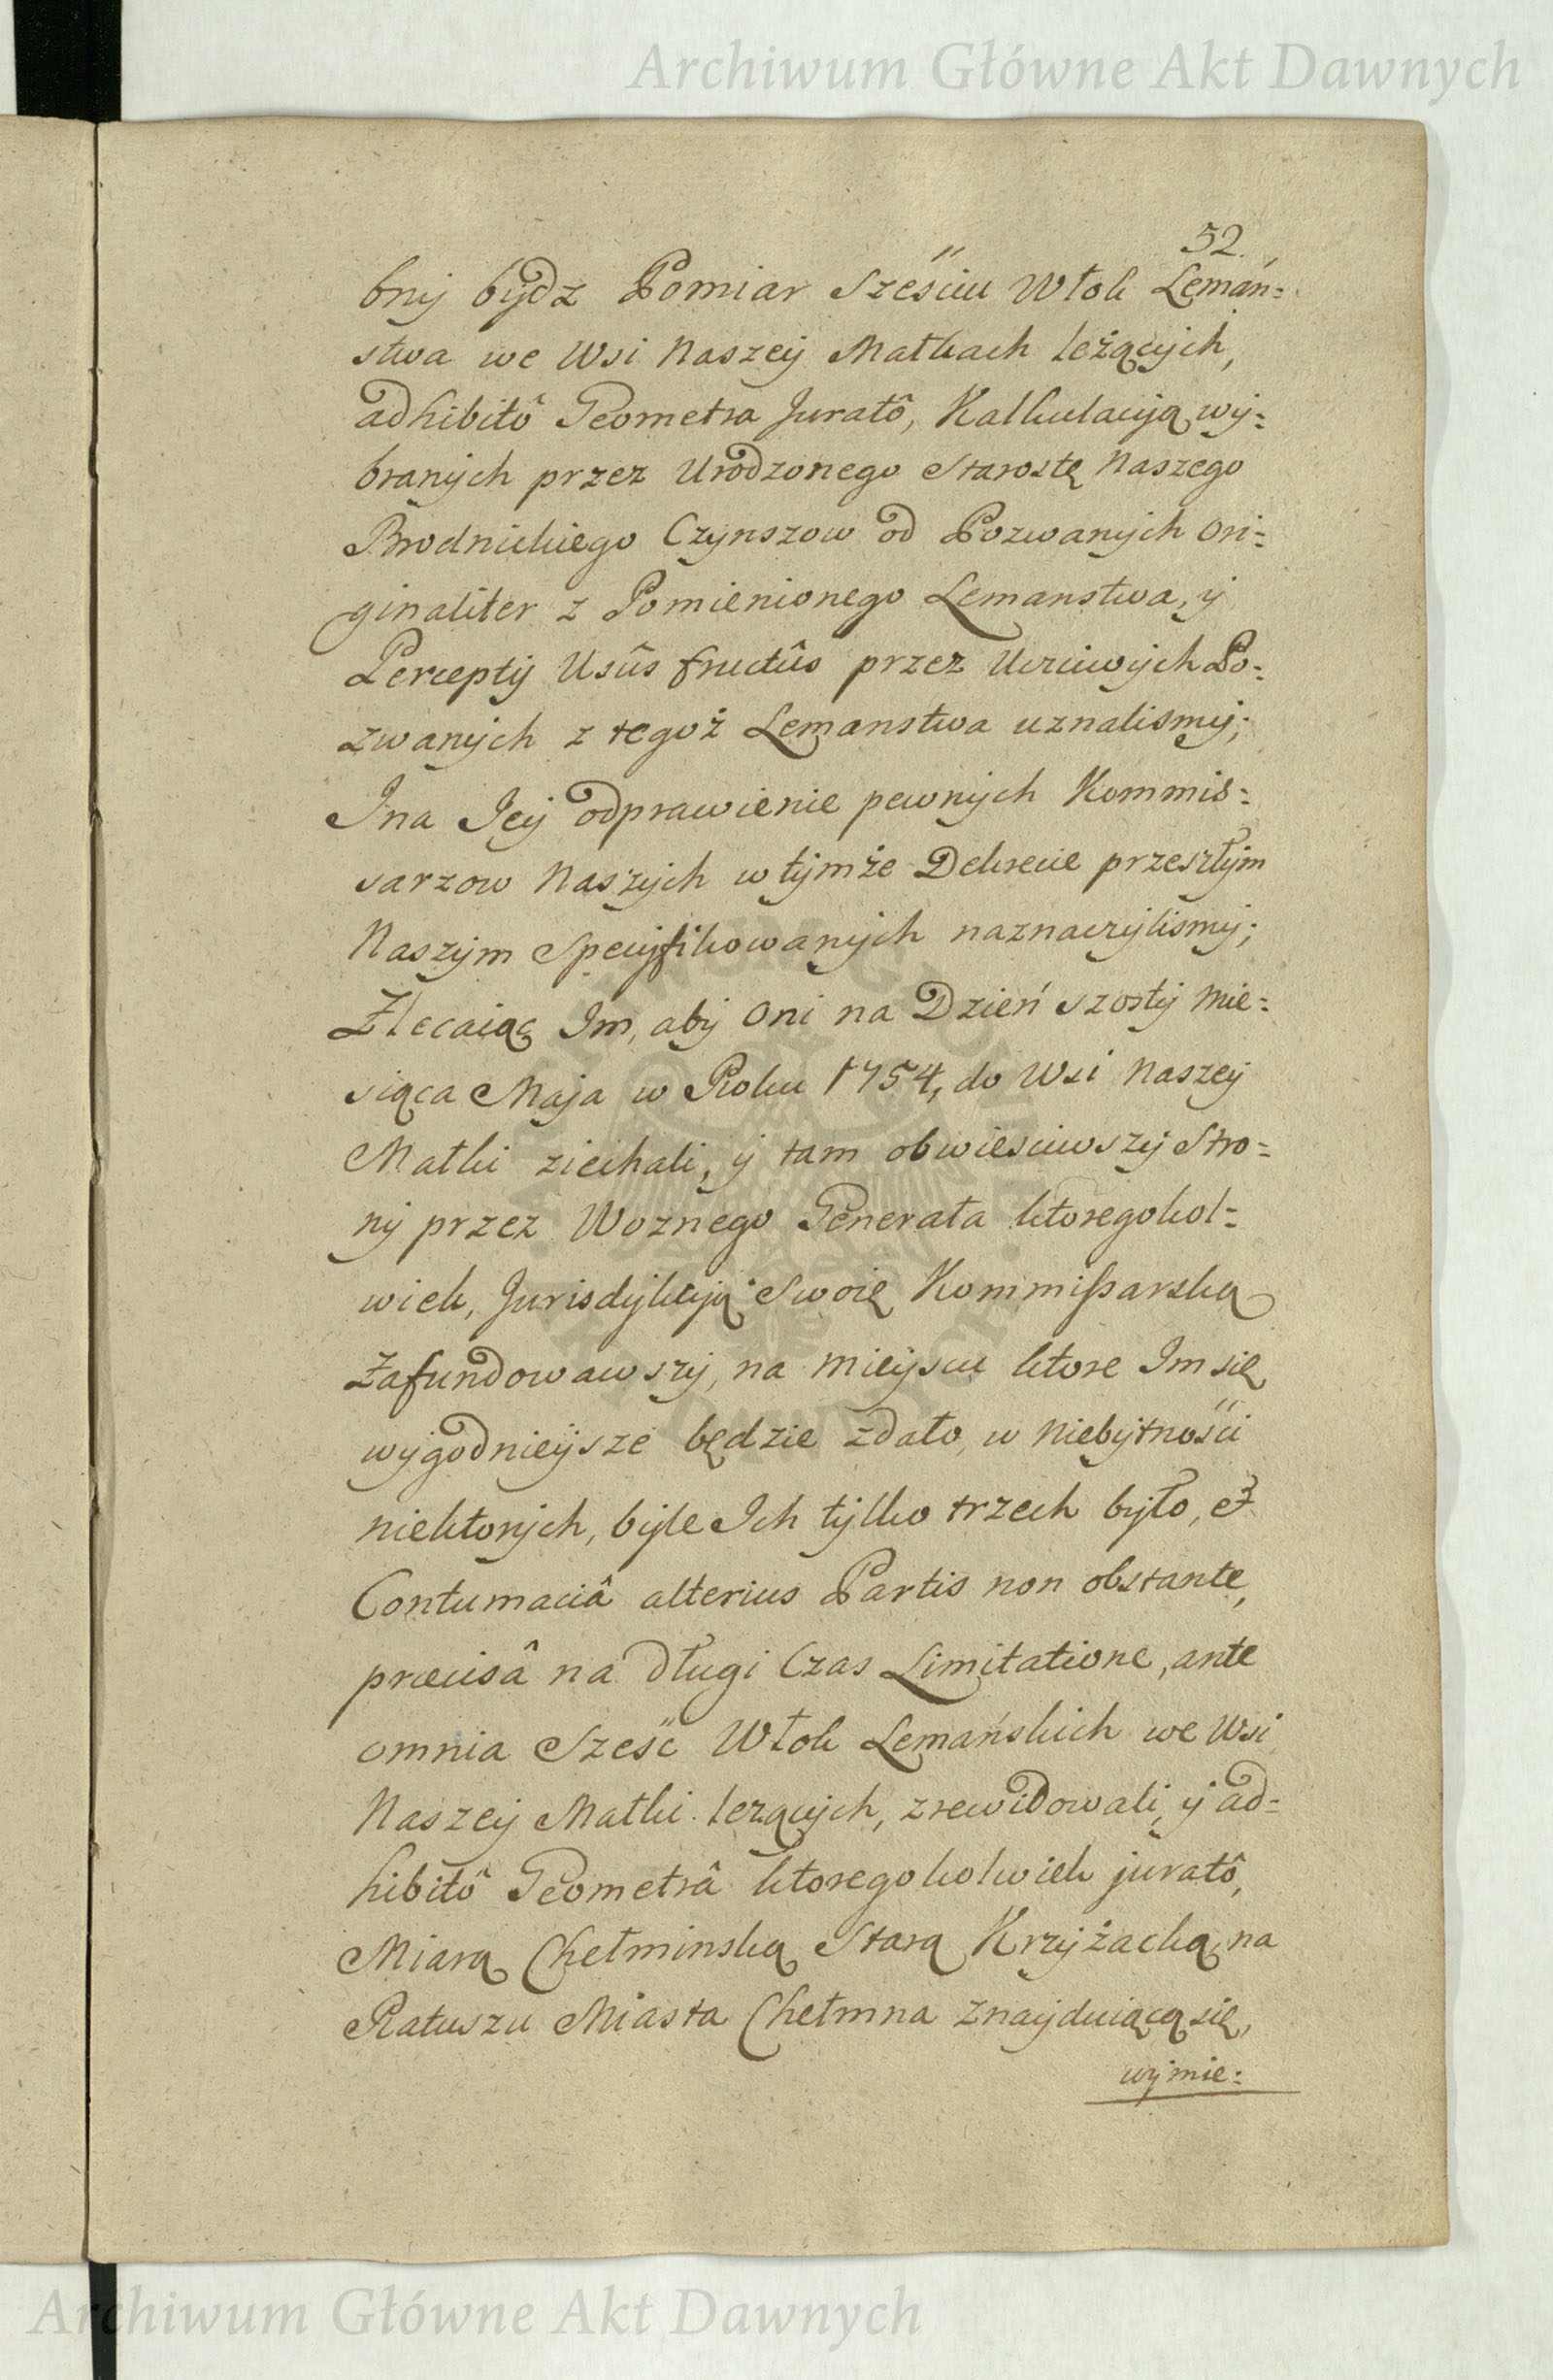 Archiwum Główne Akt Dawnych
52.
bny bydz Pomiar Szesciu Włok Lemań=
stwa we Wsi Naszey Małkach leżących,
adhibitô Geometra Juratô, Kalkulacyą wy=
branych przez Urodzonego Starostę Naszego
Brodnickiego Czynszow od Pozwanych ori=
ginaliter z Pomienionego Lemanstwa, y
Percepty Usûs fructûs przez Uczciwych Po=
zwanych z tegoż Lemanstwa uznalismy;
I na Jey odprawienie pewnych Kommis=
sarzow Naszych w tymże Dekrecie przeszłym
Naszym Specyfikowanych naznaczylismy;
Zlecaiąc Im, aby oni na Dzień szosty Mie=
siąca Maja w Roku 1754, do Wsi Naszey
Małki ziechali, y tam obwiesciwszy Stro=
ny przez Woznego Generała ktoregokol=
wiek, Jurisdykcyą Swoię Kommißarską
Zafundowawszy, na Mieyscu ktore Im się
wygodnieysze będzie zdało, w Niebytności
niektorych, byle Ich tylko trzech było, et
Contumaciâ alterius Partis non obstante,
præcisâ na długi Czas Limitatione, ante
omnia Sześć Włok Lemańskich we Wsi
Naszey Małki lezących, zrewidowali, y ad=
hibitô Geometrâ ktoregokolwiek juratô,
Miarą Chełminską Starą Krzyżacką, na
Ratuszu Miasta Chełmna znayduiącą się,
wymie=
Archiwum Główne Akt Dawnych